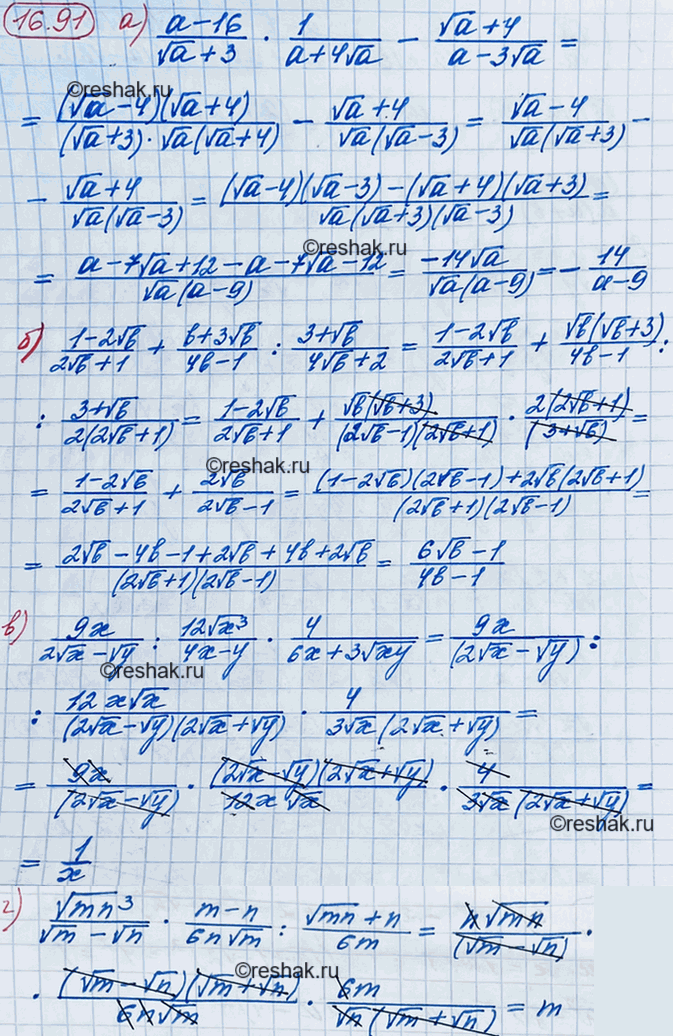 16.91 а) (a−16)/(√a+3) · 1/(a+4√a) − (√a+4)/(a−3√a) =
©reshak.ru
= ((√a−4)(√a+4))/((√a+3)·√a(√a+4)) − (√a+4)/(√a(√a−3)) = (√a−4)/(√a(√a+3)) −
− (√a+4)/(√a(√a−3)) = ((√a−4)(√a−3)−(√a+4)(√a+3))/(√a(√a+3)(√a−3)) =
©reshak.ru
= (a−7√a+12−a−7√a−12)/(√a(a−9)) = (−14√a)/(√a(a−9)) = − 14/(a−9)
б) (1−2√b)/(2√b+1) + (b+3√b)/(4b−1) : (3+√b)/(4√b+2) = (1−2√b)/(2√b+1) + (√b(√b+3))/(4b−1) :
: (3+√b)/(2(2√b+1)) = (1−2√b)/(2√b+1) + (√b(√b+3))/((2√b−1)(2√b+1)) · (2(2√b+1))/((3+√b)) =
©reshak.ru
= (1−2√b)/(2√b+1) + (2√b)/(2√b−1) = ((1−2√b)(2√b−1)+2√b(2√b+1))/((2√b+1)(2√b−1)) =
= (2√b−4b−1+2√b+4b+2√b)/((2√b+1)(2√b−1)) = (6√b−1)/(4b−1)
в) 9x/(2√x−√y) : 12√x³/(4x−y) · 4/(6x+3√xy) = 9x/((2√x−√y)) :
©reshak.ru
: 12x√x/((2√x−√y)(2√x+√y)) · 4/(3√x(2√x+√y)) =
= 9x/((2√x−√y)) · ((2√x−√y)(2√x+√y))/(12x√x) · 4/(3√x(2√x+√y)) =
©reshak.ru
= 1/x
г) √mn³/(√m−√n) · (m−n)/(6n√m) : (√mn+n)/(6m) = n√mn/((√m−√n)) ·
©reshak.ru
· ((√m−√n)(√m+√n))/(6n√m) · 6m/(√n(√m+√n)) = m